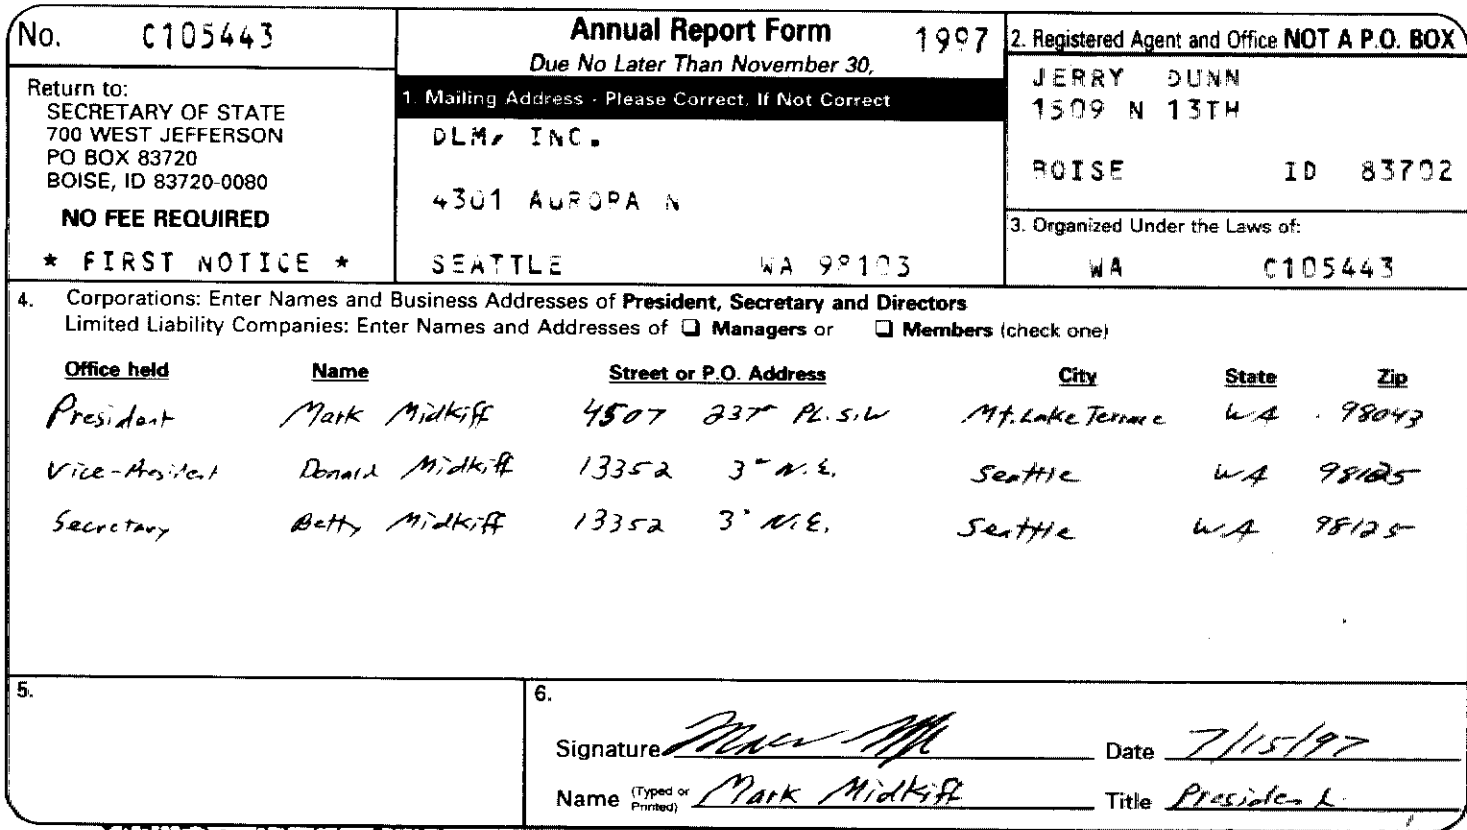 No. C105443
Return to:
SECRETARY OF STATE
700 WEST JEFFERSON
PO BOX 83720
BOISE, ID 83720-0080
NO FEE REQUIRED
* FIRST NOTICE *
Annual Report Form 1997
Due No Later Than November 30,
1. Mailing Address - Please Correct, If Not Correct
DLM, INC.
4301 AURORA N
SEATTLE WA 98103
2. Registered Agent and Office NOT A P.O. BOX
JERRY DUNN
1509 N 13TH
BOISE ID 83702
3. Organized Under the Laws of:
WA C105443
4. Corporations: Enter Names and Business Addresses of President, Secretary and Directors
Limited Liability Companies: Enter Names and Addresses of ❑ Managers or ❑ Members (check one)
Office held Name Street or P.O. Address City State Zip
President Mark Midkiff 4507 237th PL. S.W Mt. Lake Terrace WA 98043
Vice-President Donald Midkiff 13352 3rd N.E. Seattle WA 98125
Secretary Betty Midkiff 13352 3rd N.E. Seattle WA 98125
5.
6.
Signature Date 7/15/97
Name (Typed or Printed) Mark Midkiff Title President